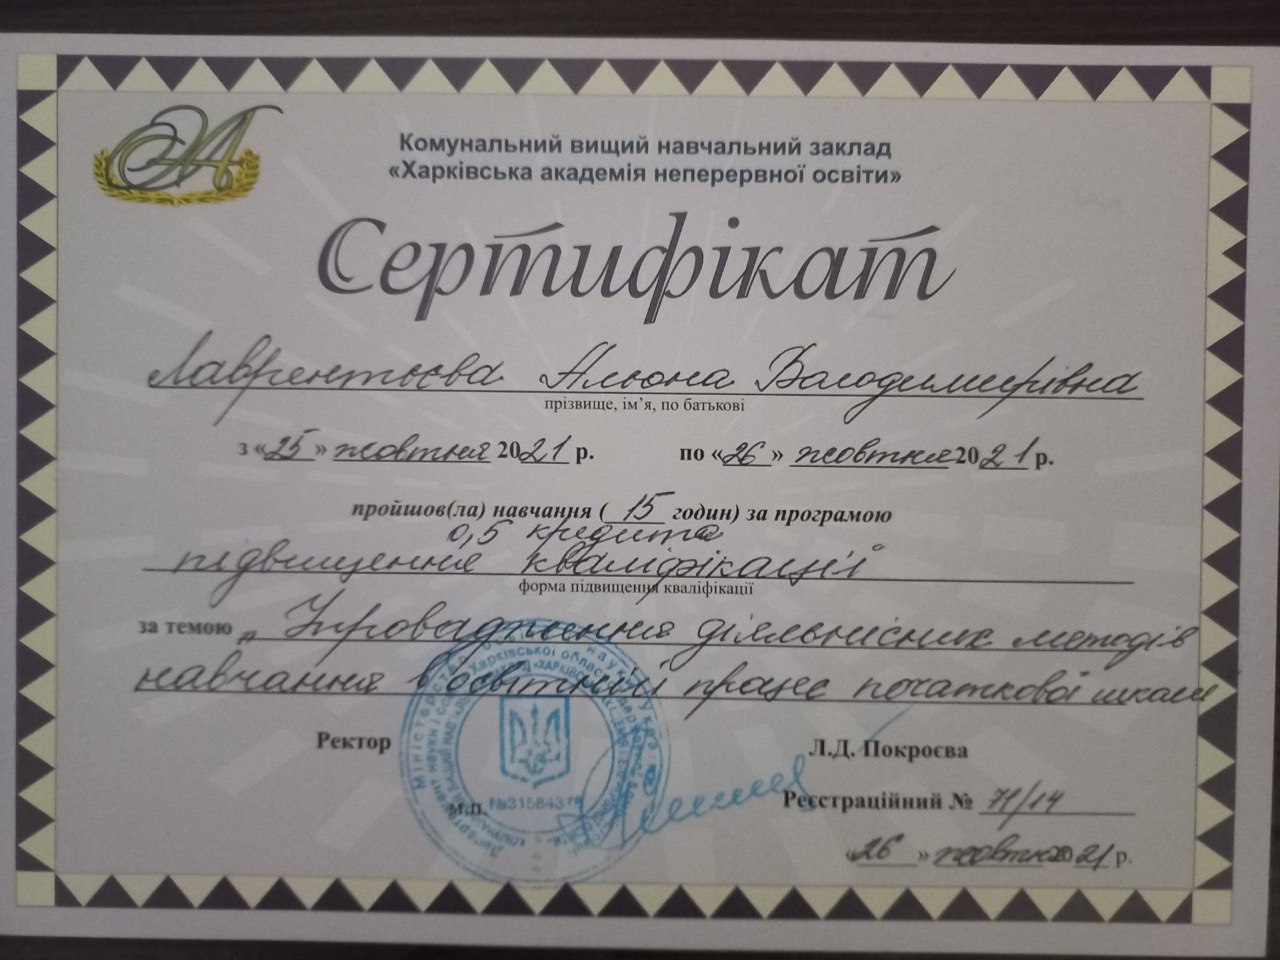 Комунальний вищий навчальний заклад
«Харківська академія неперервної освіти»
Сертифікат
Лаврентьєва Альона Володимирівна
прізвище, ім’я, по батькові
з «25» жовтня 2021 р. по «26» жовтня 2021 р.
пройшов(ла) навчання ( 15 годин) за програмою
0,5 кредита
підвищення кваліфікації
форма підвищення кваліфікації
за темою „Упровадження діяльнісних методів
навчання в освітній процес початкової школи
Ректор Л.Д. Покроєва
М.П.
Реєстраційний № 71/14
«26» жовтня 2021 р.